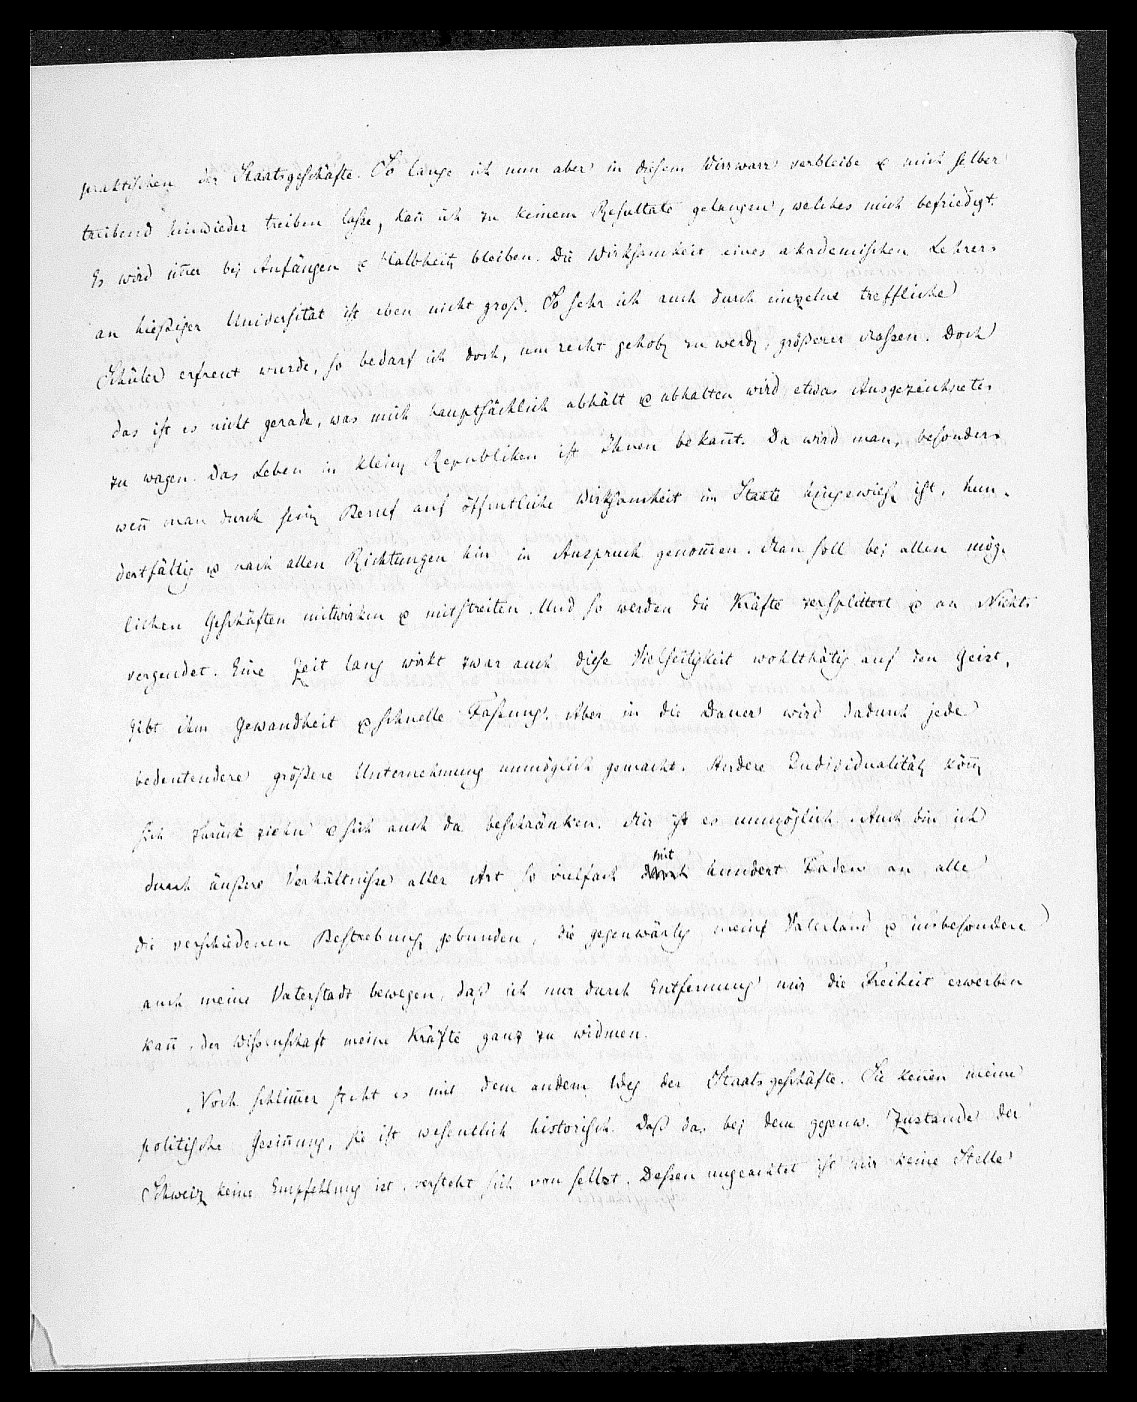 praktischen der Staatsgeschäfte. So lange ich nun aber in diesem Wirrwarr verbleibe & mich selber
treibend hinwieder treiben lasse, kañ ich zu keinem Resultate gelangen, welches mich befriedigt.
Es wird im̃er bej Anfängen & Halbheiten bleiben. Die Wirksamkeit eines akademischen Lehrers
an hießiger Universität ist eben nicht groß. So sehr ich auch durch einzelne treffliche
Schüler erfreut wurde, so bedarf ich doch, um recht gehoben zu werden, größerer Massen. Doch
das ist es nicht gerade, was mich hauptsächlich abhält & abhalten wird etwas Ausgezeichnetes
zu wagen. Das Leben in kleinen Republiken ist Ihnen bekañt. Da wird man, besonders
weñ man durch seinen Beruf auf öffentliche Wirksamkeit im Staate hingewiesen ist, hun-
dertfältig & nach allen Richtungen hin in Anspruch genom̃en. Man soll bej allen mög-
lichen Geschäften mitwirken & mitstreiten. Und so werden die Kräfte zersplittert & an Nichts
vergeudet. Eine Zeit lang wirkt zwar auch diese Vielseitigkeit wohlthätig auf den Geist,
gibt ihm Gewandheit & schnelle Fassung. Aber in die Dauer wird dadurch jede
bedeutendere größere Unternehmung unmöglich gemacht. Andere Individualitäten köñen
sich zurück ziehn & sich auch da beschränken. Mir ist es unmöglich. Auch bin ich
durch äußere Verhältnisse aller Art so vielfach durch mit hundert Fäden an alle
die verschiedenen Bestrebungen gebunden, die gegenwärtig meines Vaterland & insbesondere
auch meine Vaterstadt bewegen, daß ich nur durch Entfernung mir die Freiheit erwerben
kañ, der Wissenschaft meine Kräfte ganz zu widmen.
Noch schlim̃er steht es mit dem andern Weg der Staatsgeschäfte. Sie keñen meine
politische Gesiñung, sie ist wesentlich historisch. Daß das bej dem gegenw. Zustande der
Schweiz keine Empfehlung ist, versteht sich von selbst. Dessen ungeachtet ist mir keine Stelle